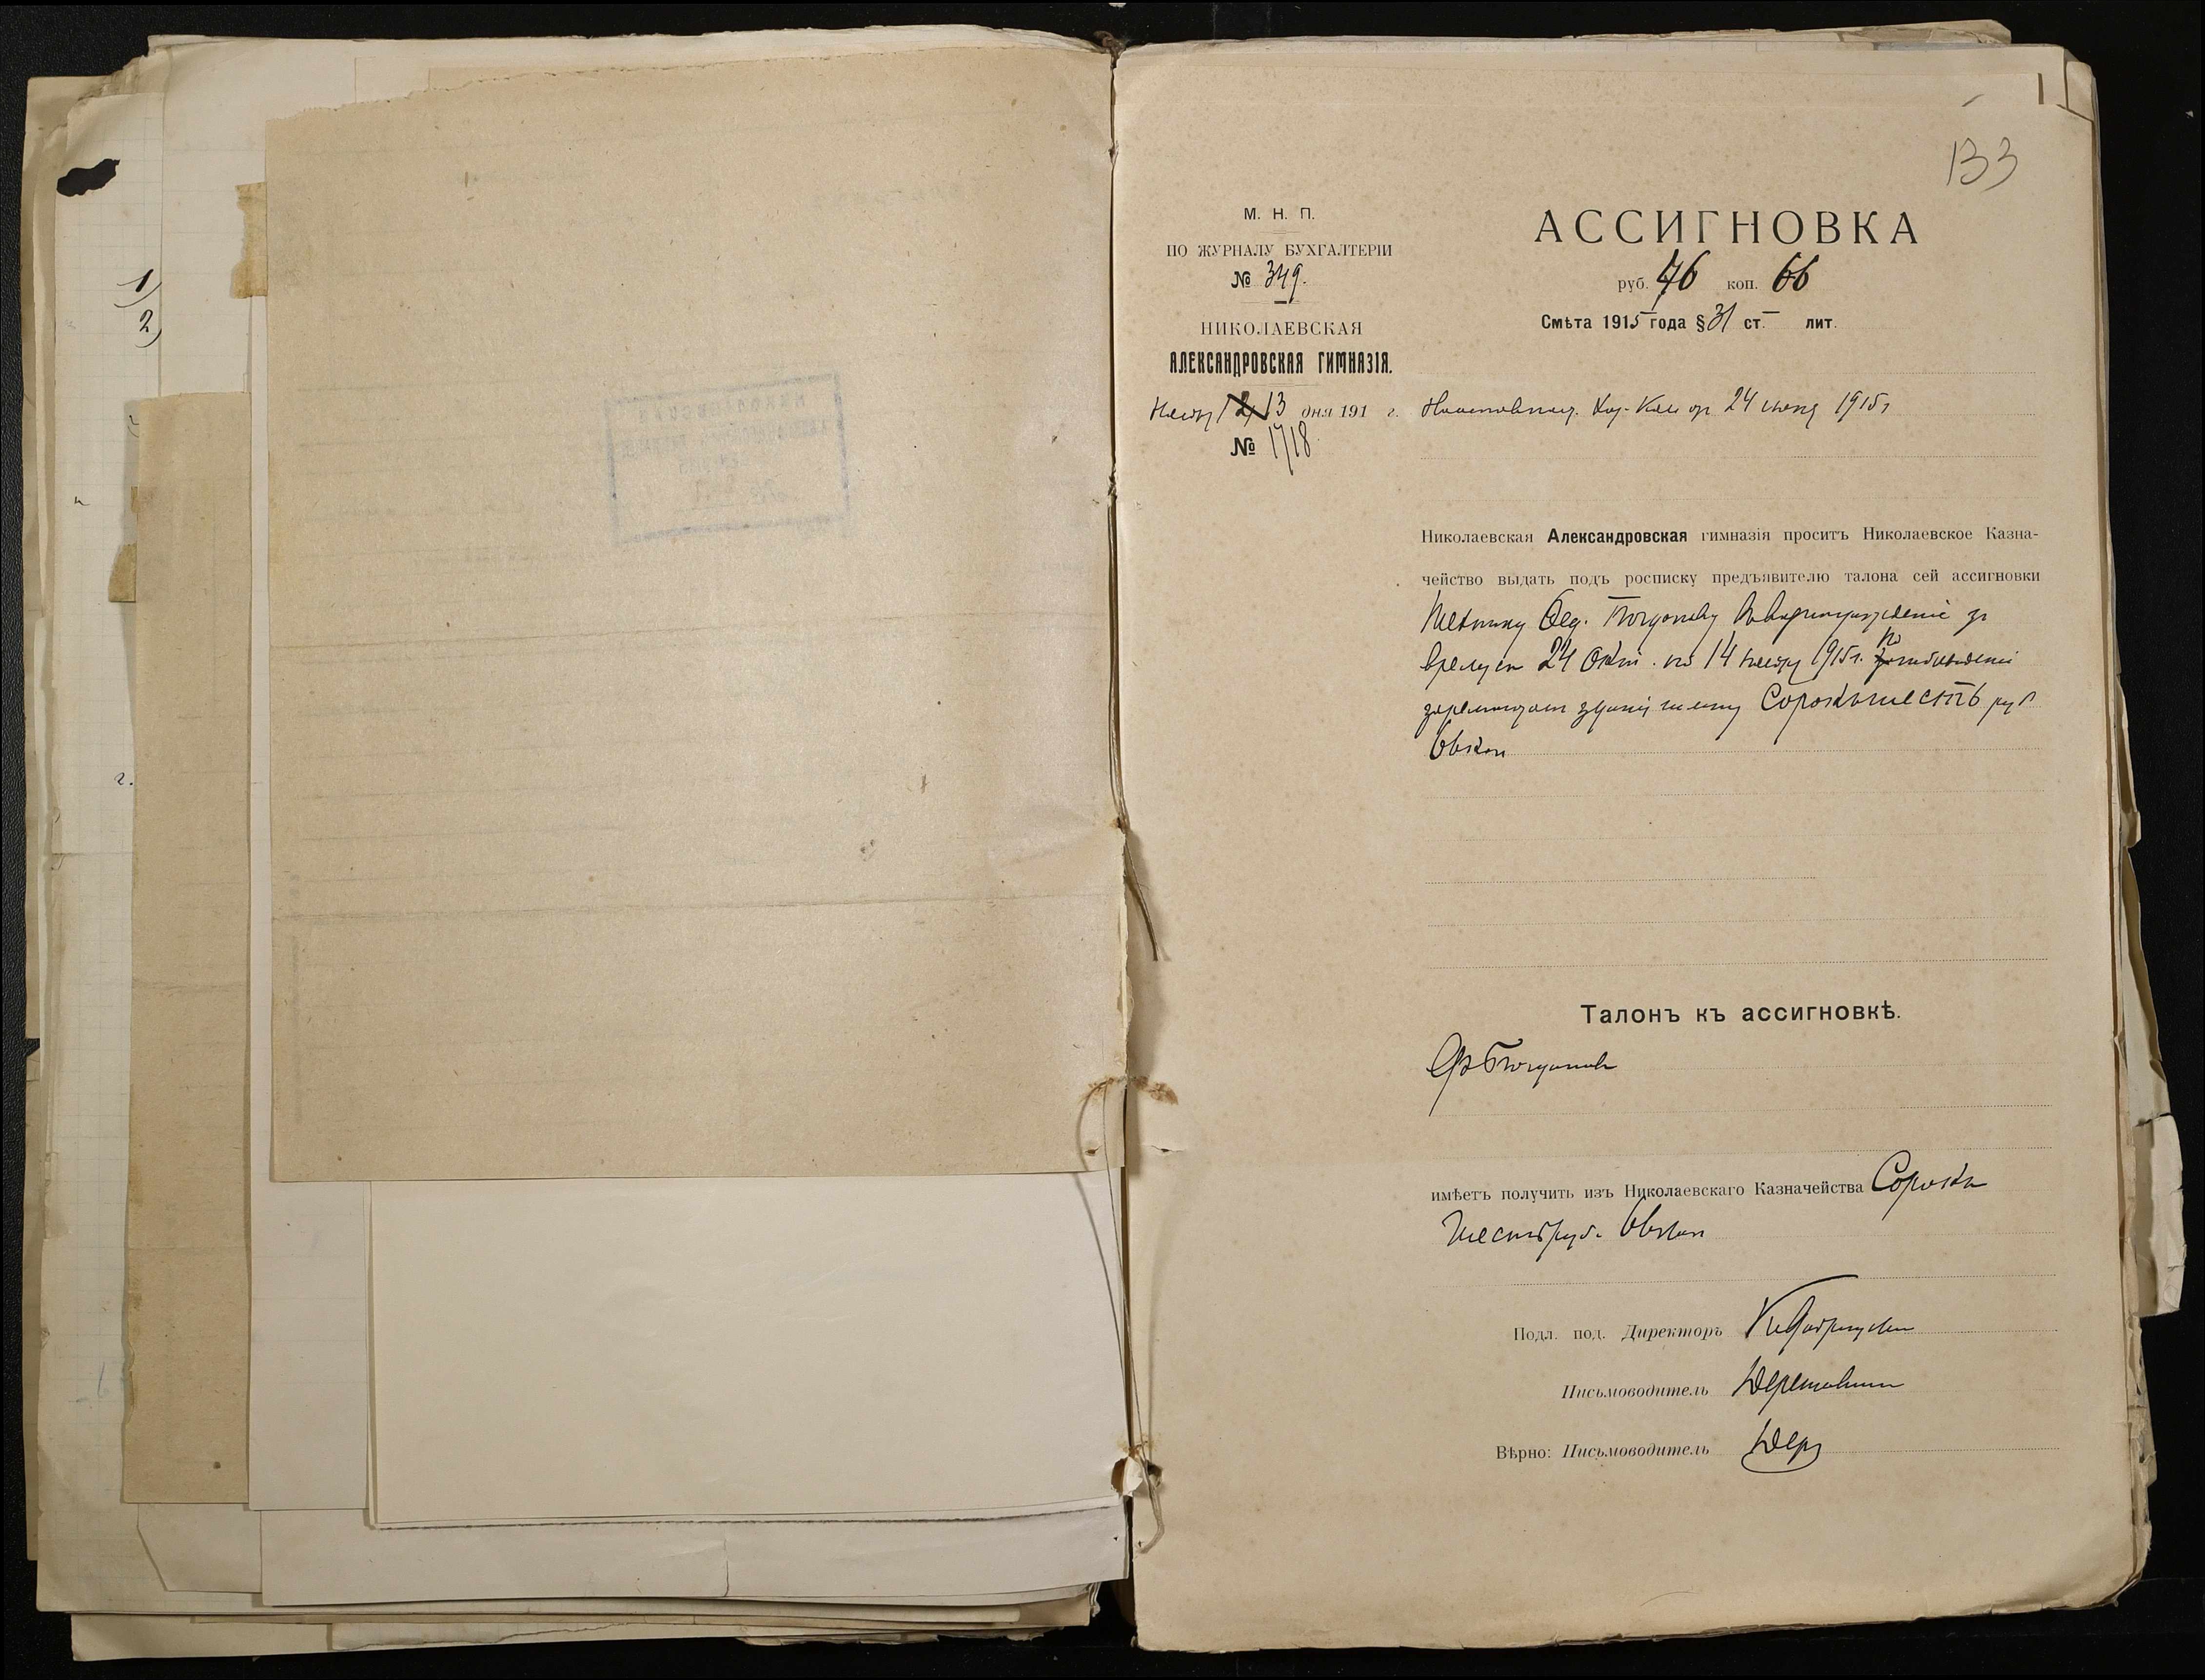 1)
2)
г.
133
М. Н. П.
ПО ЖУРНАЛУ БУХГАЛТЕРІИ
№ 349.
НИКОЛАЕВСКАЯ
АЛЕКСАНДРОВСКАЯ ГИМНАЗІЯ.
13 дня 191 г.
№ 1718
АССИГНОВКА
руб. 46 коп. 66
Смѣта 1915 года § 31 ст. – лит.
24 1915 г
Николаевская Александровская гимназія проситъ Николаевское Казна-
чейство выдать подъ росписку предъявителю талона сей ассигновки
Технику Ѳед. Богданову вознагражденіе за
время съ 24 Окт. по 14 1915 г. по наблюденію
за ремонтомъ зданія Сорокъ шесть руб
66 коп
Талонъ къ ассигновкѣ.
Богданов
имѣетъ получить изъ Николаевскаго Казначейства Сорокъ
шесть руб. 66 коп
Подл. под. Директоръ
Письмоводитель
Вѣрно: Письмоводитель